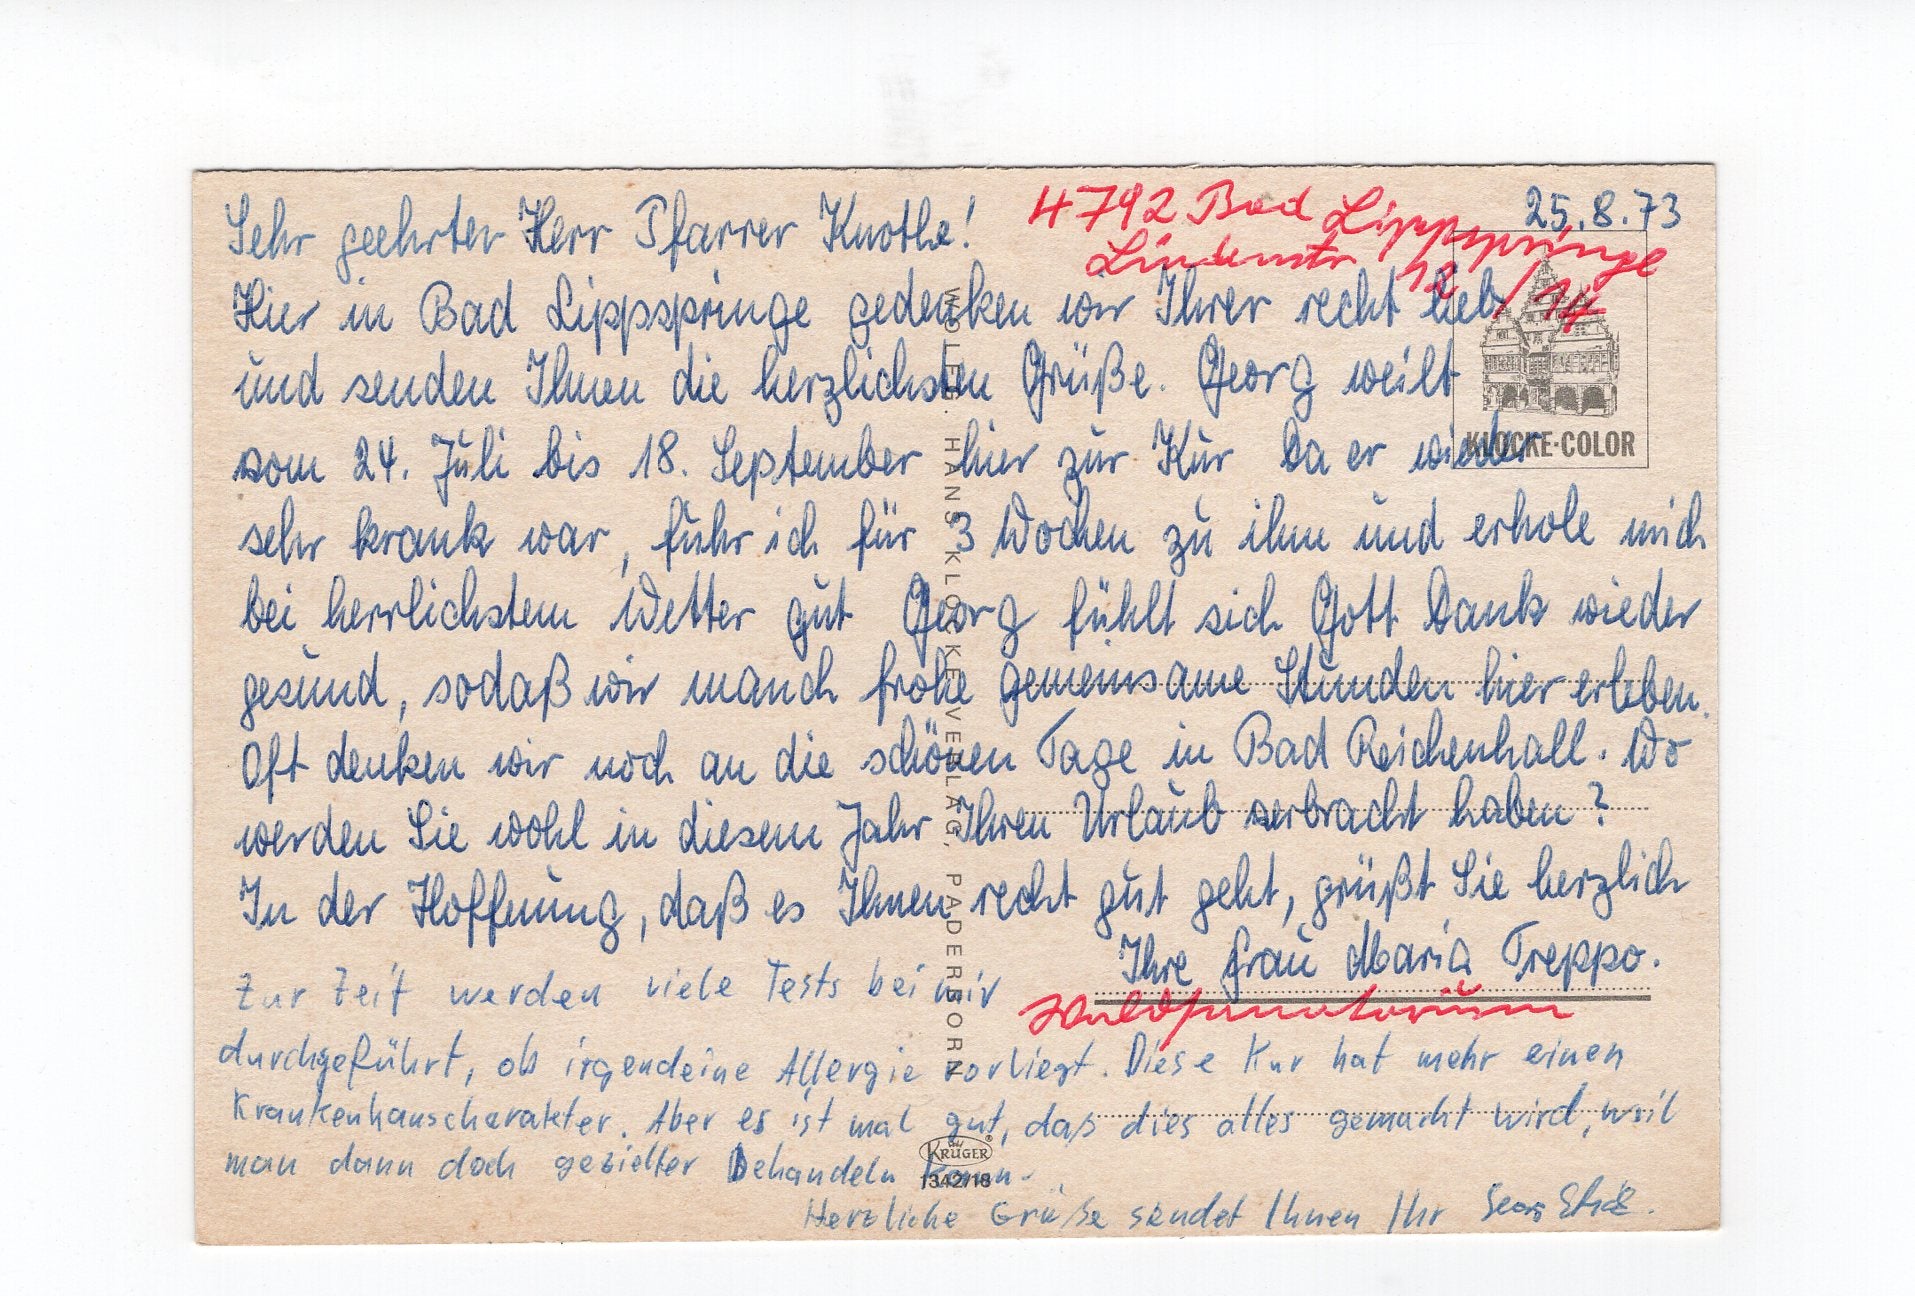 25.8.73
4792 Bad Lippspringe
Lindenstr 12/14
Sehr geehrter Herr Pfarrer Knothe!
Hier in Bad Lippspringe gedenken wir Ihrer recht lieb
und senden Ihnen die herzlichsten Grüße. Georg weilt
vom 24. Juli bis 18. September hier zur Kur Da er wieder
sehr krank war, fuhr ich für 3 Wochen zu ihm und erhole mich
bei herrlichstem Wetter gut Georg fühlt sich Gott Dank wieder
gesund, sodaß wir manch frohe gemeinsame Stunden hier erleben.
Oft denken wir noch an die schönen Tage in Bad Reichenhall. Wo
werden Sie wohl in diesem Jahr Ihren Urlaub verbracht haben?
In der Hoffnung, daß es Ihnen recht gut geht, grüßt Sie herzlich
Ihre Frau Maria Treppo.
Waldsanatorium
Zur Zeit werden viele Tests bei mir
durchgeführt, ob irgendeine Allergie vorliegt. Diese Kur hat mehr einen
Krankenhauscharakter. Aber es ist mal gut, das dies alles gemacht wird, weil
man dann doch gezielter behandeln kann.
Herzliche Grüße sendet Ihnen Ihr Georg
KLOCKE-COLOR
HANS KLOCKE VERLAG, PADERBORN
KRÜGER
1342/18